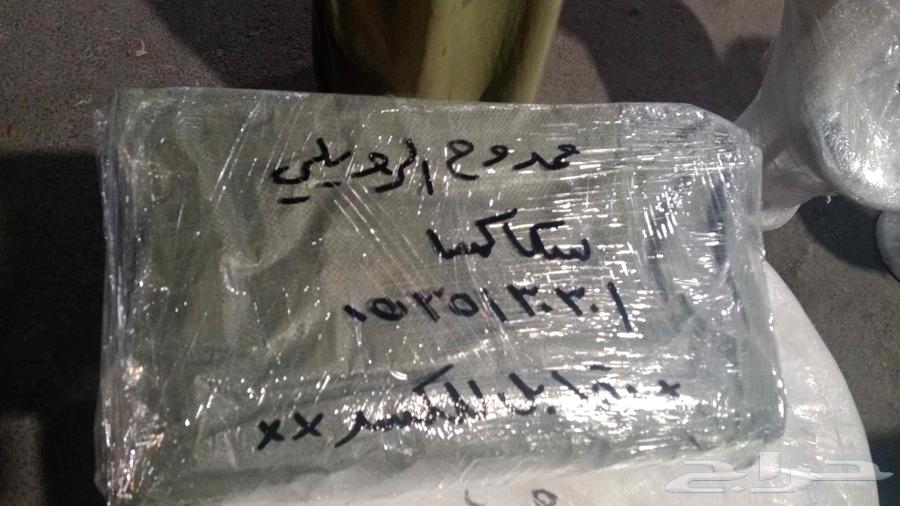 ممدوح الرويلي
سكاكا
٠٥٥٣٥١٣٠٣٠١
قابل للكسر xx
حراج